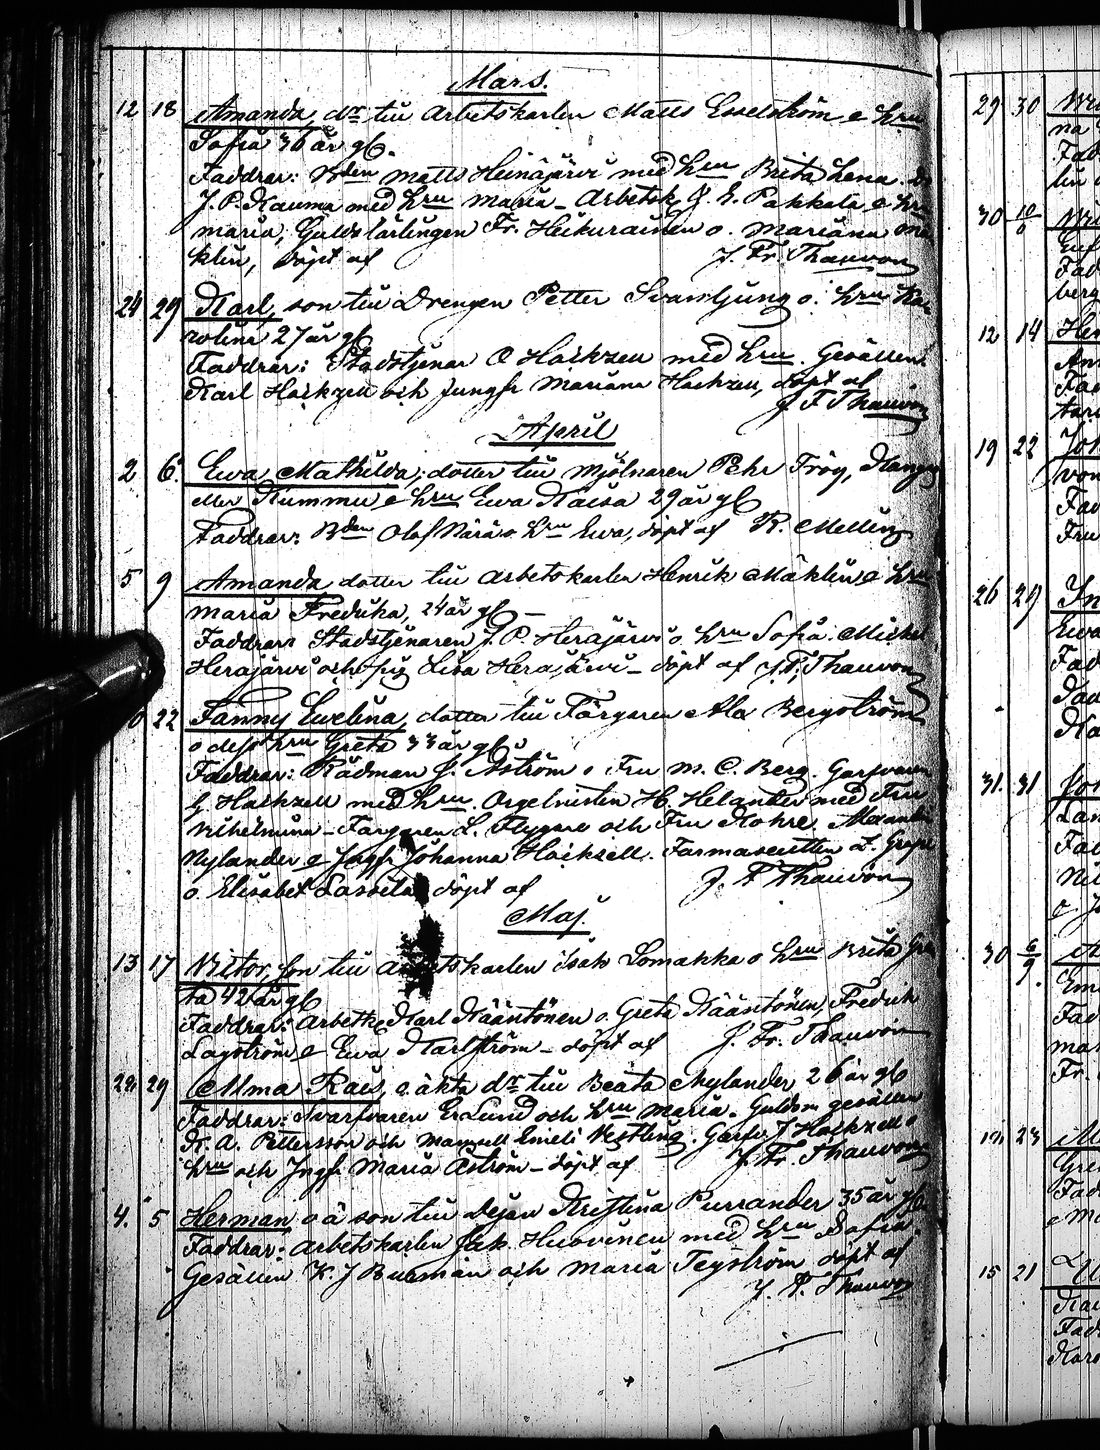 Mars.
12 18 Amanda, dr till Arbetskarlen Matts Esselström o hru
Sofia 36 år gl.
Faddrar: Bden Matts Heinäjärvi med hru Brita Lena.
J. P. Rauma med hru Maria – Arbetsk. J. E. Pakkala o hru
Maria, Guldslärlingen Fr. Heikurainen o. Mariana Mä-
klin, döpt af J. Fr. Thauvón
24 29 Karl, son till Drengen Petter Svanljung o. hru Ka-
rolina 27 år gl
Faddrar: Stadstjenar Hackzell med hru. Gesällen
Karl Hackzell och Jungfr Mariana Hackzell, döpt af
J F Thauvón
April
2 6. Ewa Mathilda, dotter till Mjölnaren Pehr Frög, Kangas
eller Kummu o hru Ewa Kaisa 29 år gl
Faddrar: Bden Olof Närä o hru Ewa, döpt af R. Mellin
5 9 Amanda dotter till Arbetskarlen Henrik Mäklin o hru
Maria Fredrika, 24 år gl –
Faddrar: Stadstjenaren J. P. Herajärvi o. hru Sofia. Mickel
Herajärvi och Lisa Herajärvi – döpt af J. F. Thauvon
22 Fanny Ewelina, dotter till Färgaren Alex Bergström
o dess hru Greta 33 år gl.
Faddrar: Rådman J. Åström o Fru M. C. Berg. Garfvaren
G. Hackzell med hru. Orgelnisten H. Helander med Fru
Vilhelmina – Färgaren L. Flyggare och Fru Rohre. Alexander
Nylander o Jngfr Johanna Hackzell. Farmaceutten
o. Elisabet Lassila döpt af J. F Thauvón
Maj.
13 17 Viktor, son till Arbetskarlen Isak Lomakka o hru Brita Gre-
ta 42 år gl
Faddrar: Arbetk. Karl Kääntönen o. Greta Kääntönen, Fredrik
Lagström o Ewa Karlström – döpt af J. Fr. Thauvón
29 Alma o äkta dr till Beata Nylander 26 år gl
Faddrar: Svarfvaren E. Lund och hru Maria. Guldsm. gesällen
K. A. Pettersson och Mamsell Emeli Vestling. Garfv. J Hackzell o
hru och Jngfr Maria Åström – döpt af J. Fr. Thauvon
4. 5 Herman o ä son till Dejan Kristina Purrander 35 år gl.
Faddrar: Arbetskarlen Jak. Huovinen med hru Sofia
Gesällen K. J Burman och Maria Tegström döpt af
J. F. Thauvon
29 30
na
Fad
30 10/6
Fad
berg
12 14
Fad
19 22
von
Fad
Fru
26 29
Ewa
Fad
31. 31
Fad
30 6/9
Fad
Fr.
23
Fad
15 21
Fad